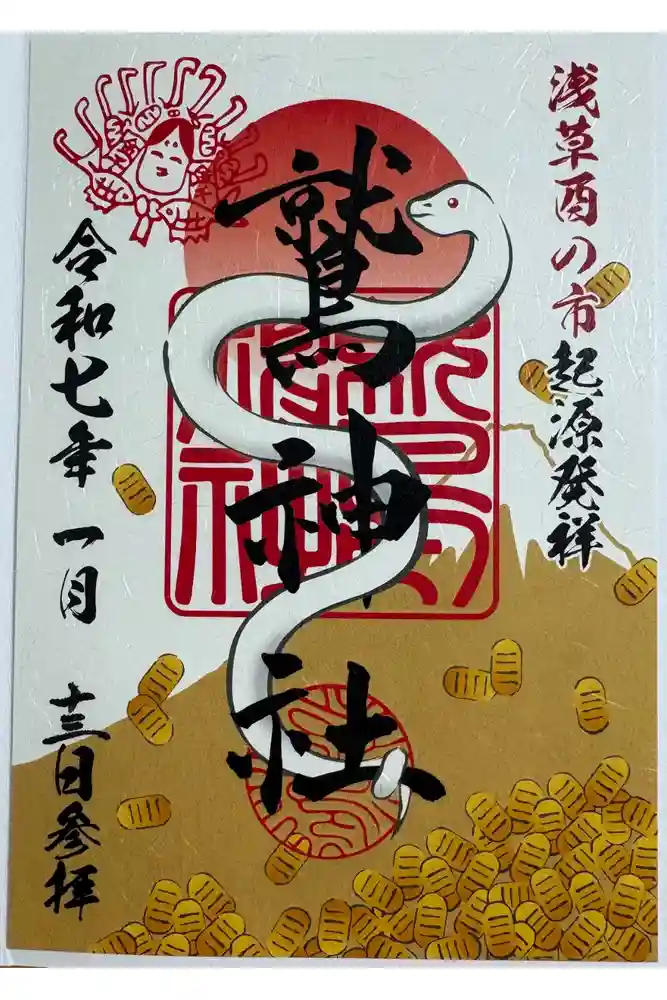 浅草酉の市起源発祥
鷲神社
令和七年一月十三日参拝